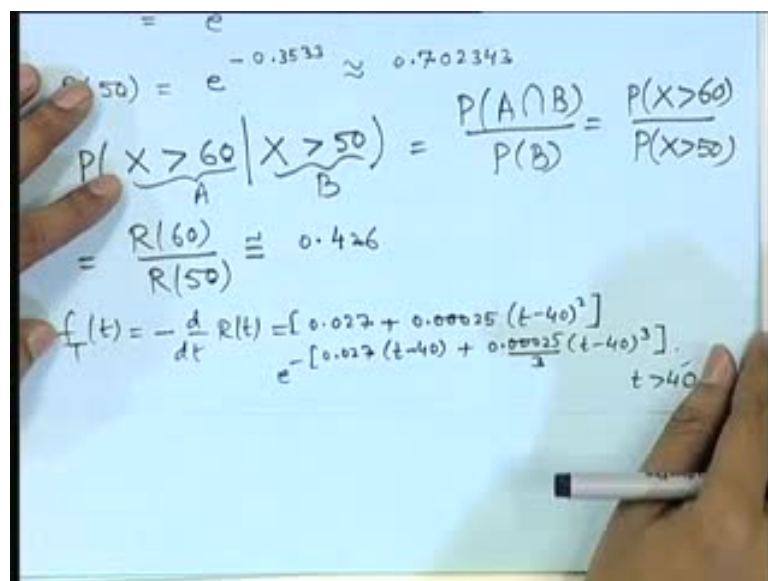 = e
(50) = e^{-0.3533} ≈ 0.702343
P( X > 60 | X > 50 ) = P(A∩B) / P(B) = P(X>60) / P(X>50)
A B
= R(60) / R(50) ≅ 0.426
f_T(t) = - d/dt R(t) = [ 0.027 + 0.00025 (t-40)^2 ]
e^{-[0.027 (t-40) + 0.00025/3 (t-40)^3]}.
t>40